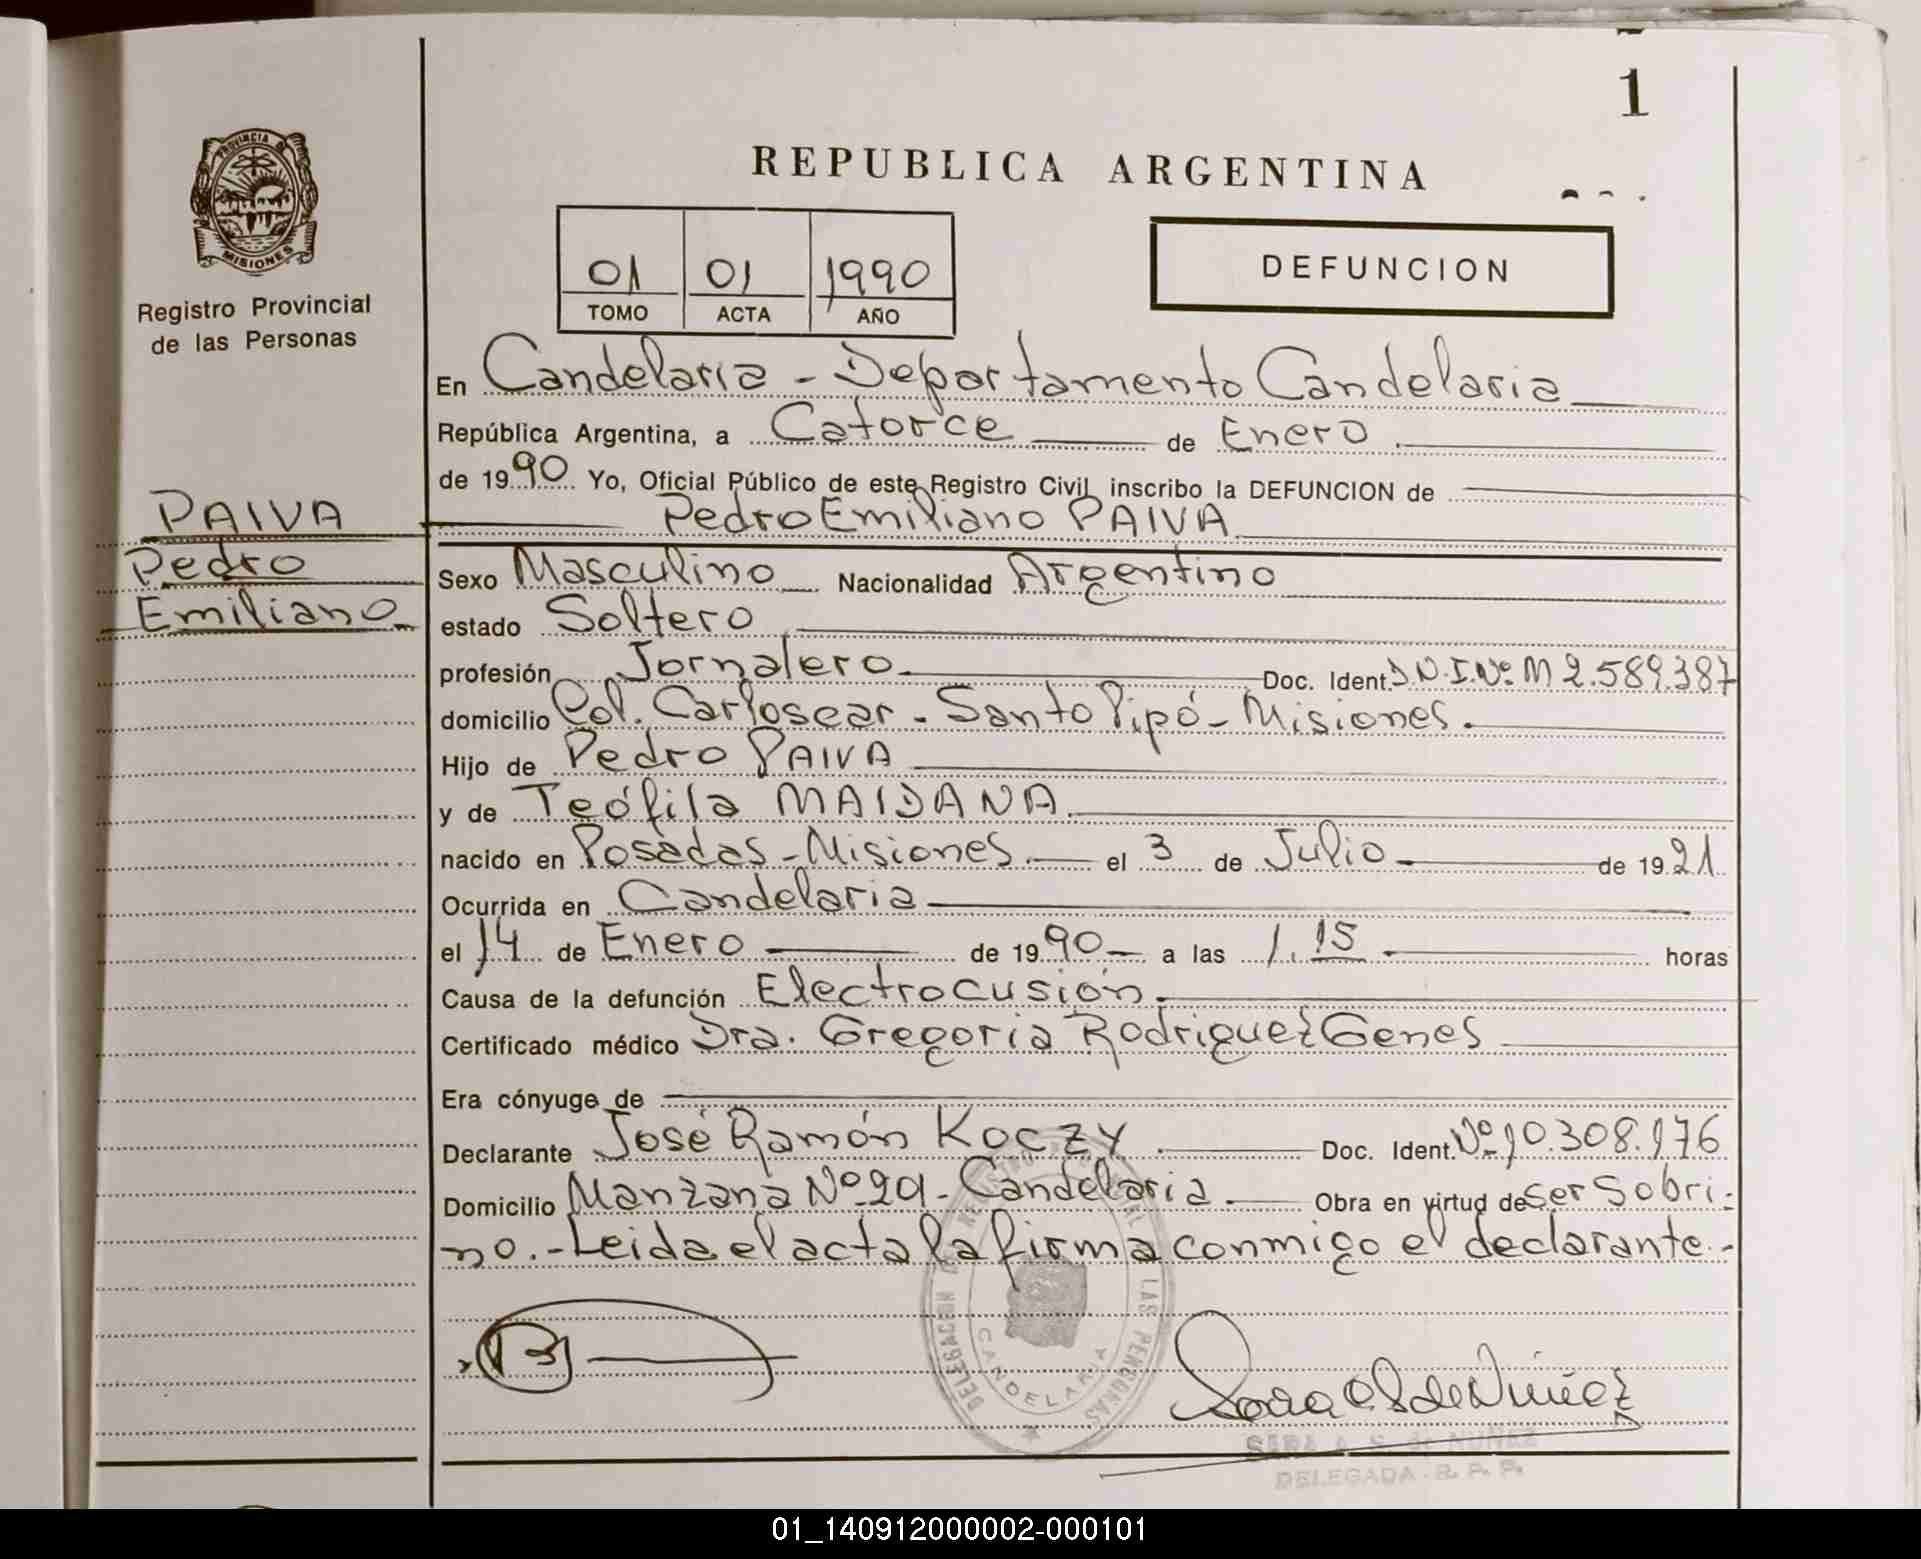 1
PROVINCIA DE
MISIONES
Registro Provincial
de las Personas
REPUBLICA ARGENTINA
01 01 1990
TOMO ACTA AÑO
DEFUNCION
En Candelaria - Departamento Candelaria
República Argentina, a Catorce de Enero
de 1990 Yo, Oficial Público de este Registro Civil inscribo la DEFUNCION de
PAIVA
Pedro
Emiliano
Pedro Emiliano PAIVA
Sexo Masculino Nacionalidad Argentino
estado Soltero
profesión Jornalero Doc. Ident. D.N.I. Nº M 2.589.387
domicilio Col. Carlosear - Santo Pipó - Misiones.
Hijo de Pedro PAIVA
y de Teófila MAIDANA
nacido en Posadas - Misiones el 3 de Julio de 1921
Ocurrida en Candelaria
el 14 de Enero de 1990 a las 1.15 horas
Causa de la defunción Electrocusión.
Certificado médico Dra. Gregoria Rodriguez Genes
Era cónyuge de
Declarante José Ramón KOCZY Doc. Ident. Nº 10.308.176
Domicilio Manzana Nº 29 - Candelaria. Obra en virtud de ser sobri-
no.- Leida el acta la firma conmigo el declarante.-
DELEGACION DE REGISTRO PROVINCIAL LAS PERSONAS
CANDELARIA
SARA A. S. de NUÑEZ
DELEGADA R. P. P.
01_140912000002-000101